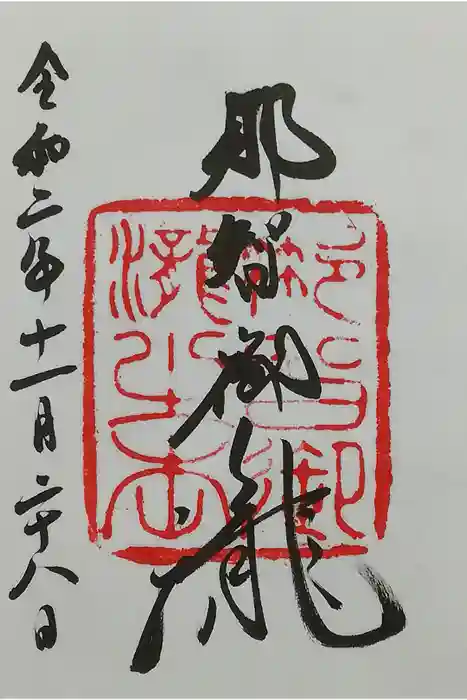 那智御瀧
令和二年十一月二十八日